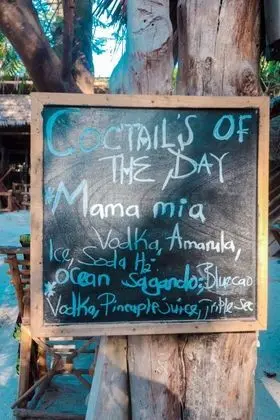 COCTAIL'S OF
THE DAY
*Mama mia
Vodka, Amarula,
Ice, Soda
*Ocean Sagando: Bluecao
Vodka, Pineapple juice, Triple Sec